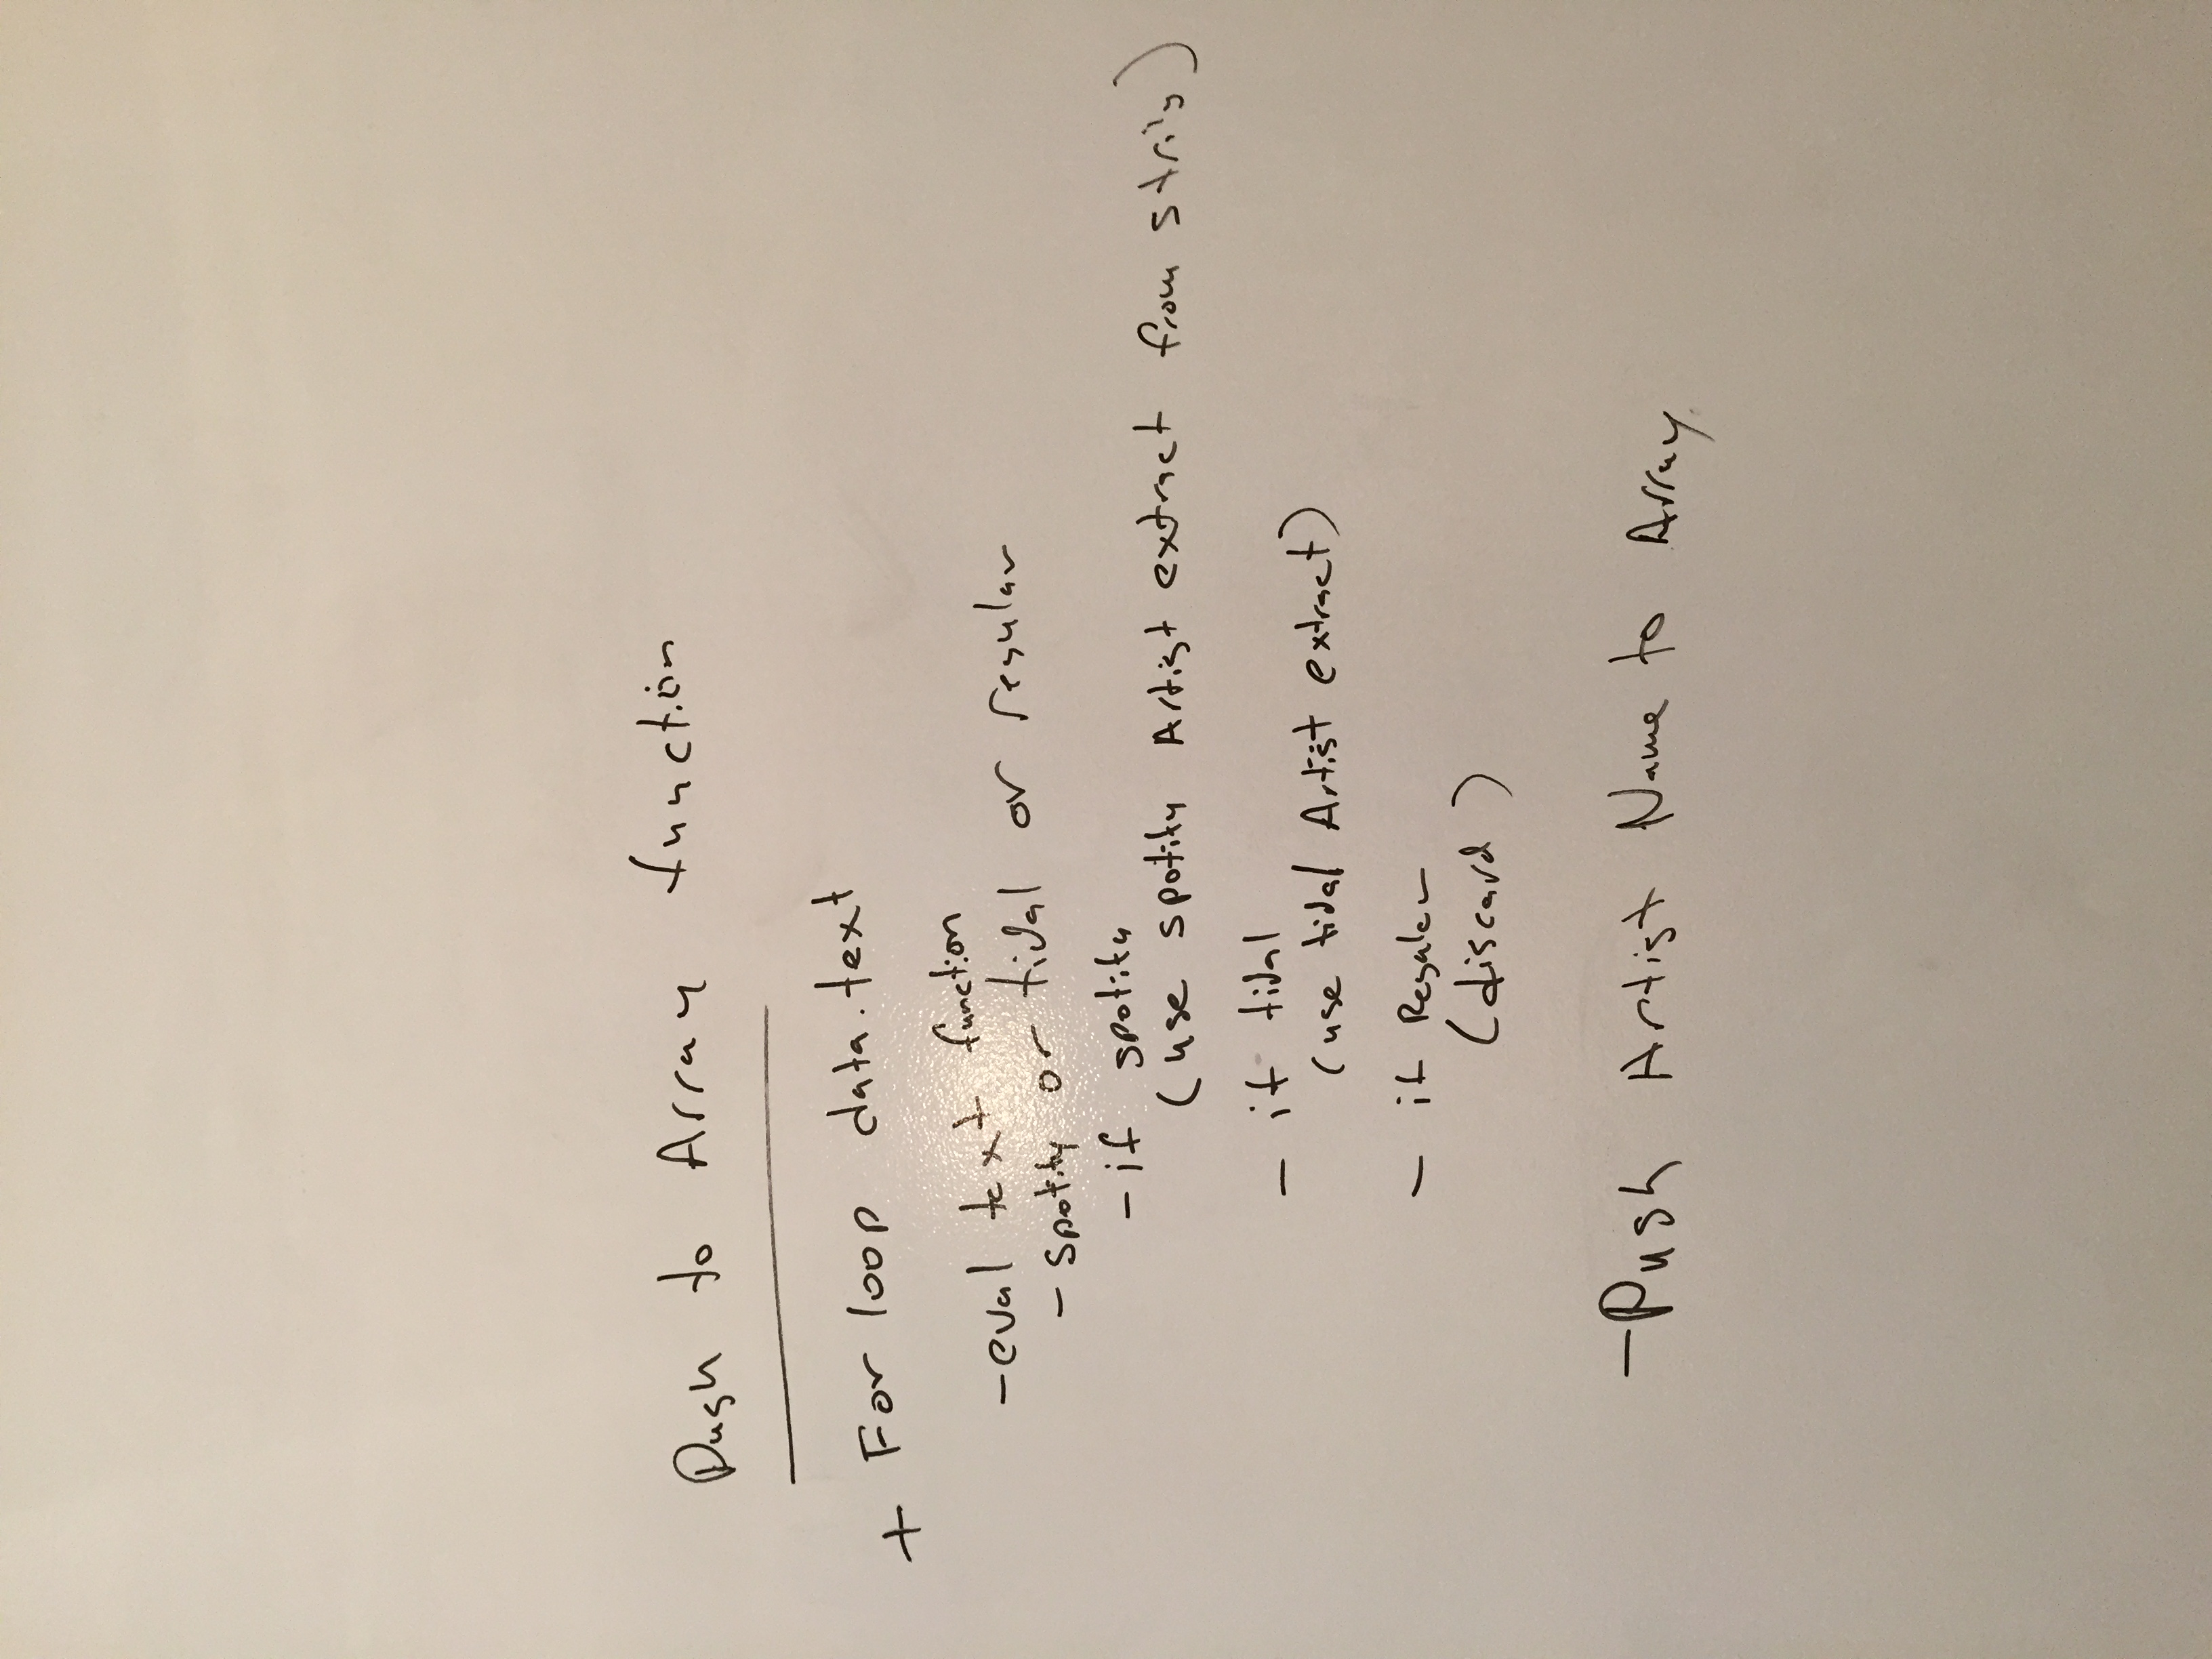 Push to Array function
+ For loop data.text
- eval text function
- spotify or tidal or regular
- if spotify
(use spotify Artist extract from string)
- if tidal
(use tidal Artist extract)
- if Regular
(discard)
- Push Artist Name to Array